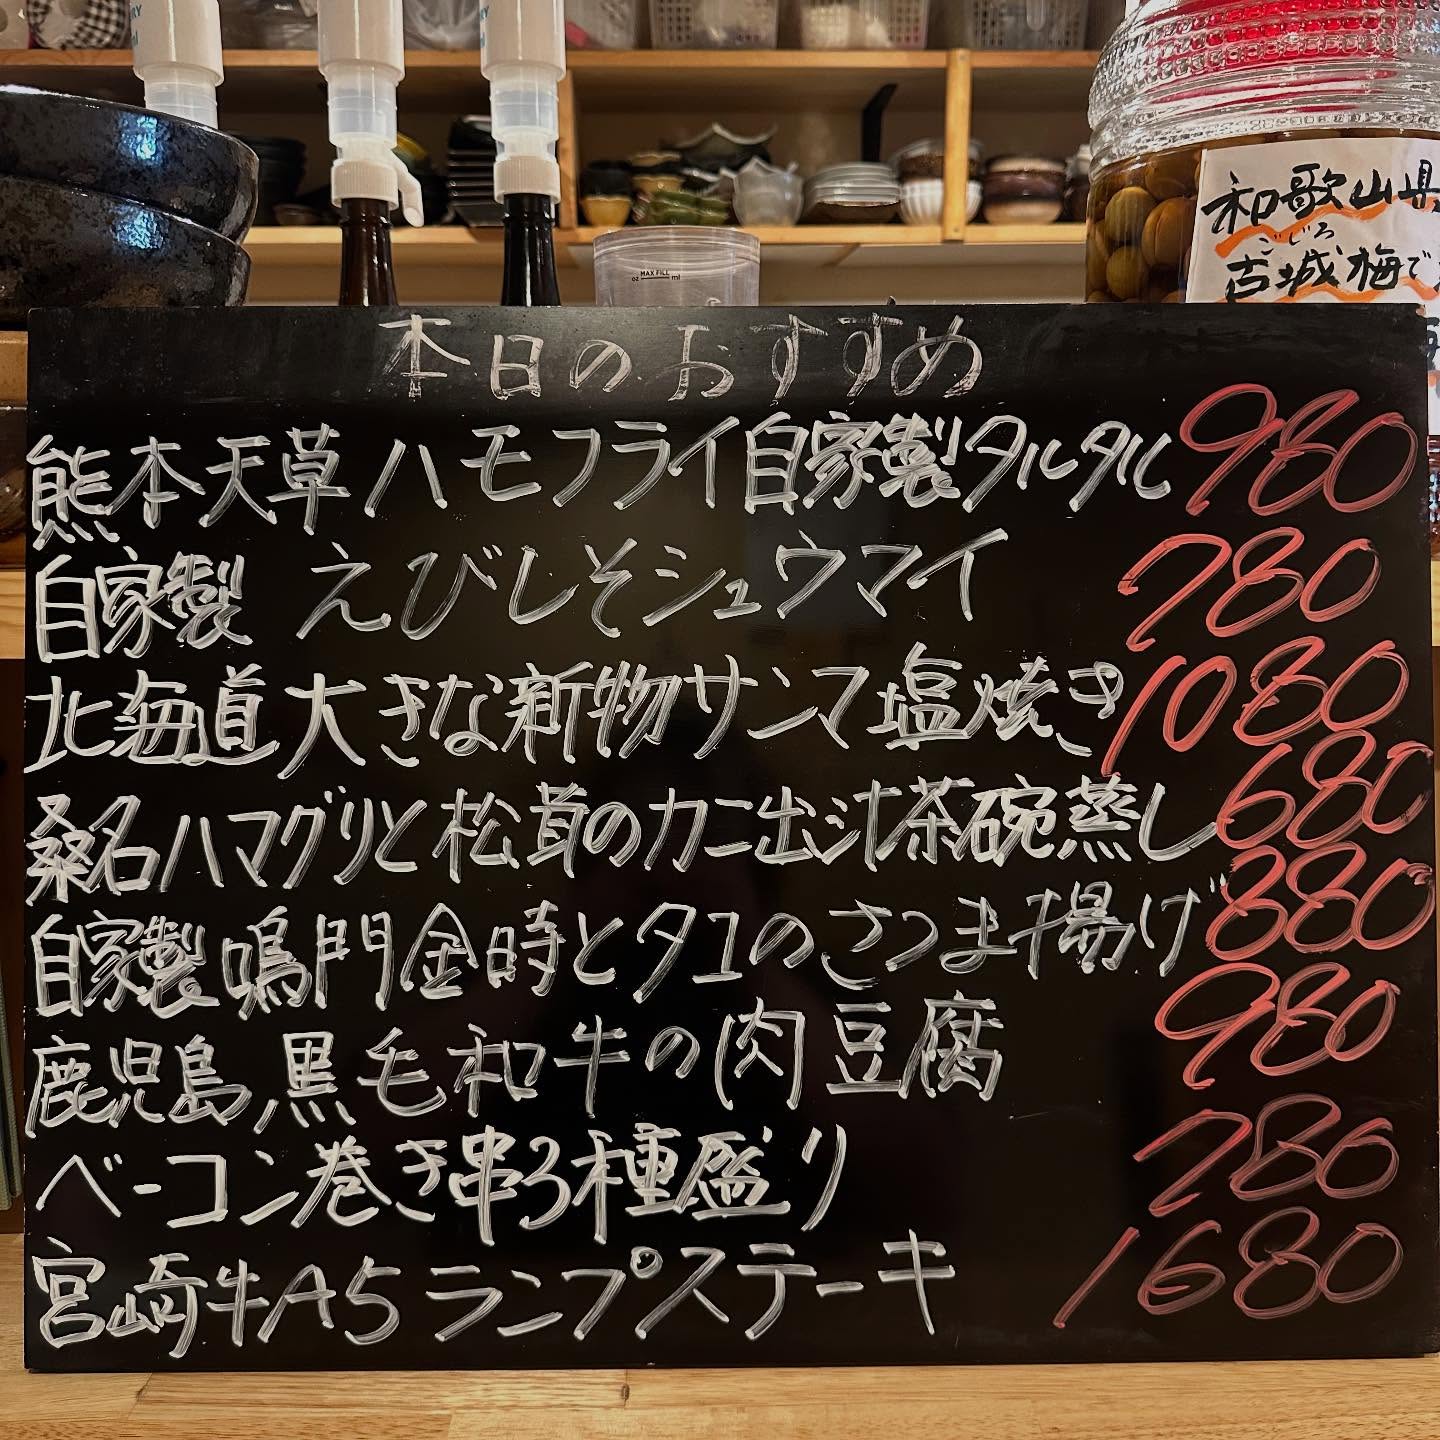 MAX FILL
oz ml
和歌山県
ごじろ
古城梅で
本日のおすすめ
熊本天草ハモフライ自家製タルタル 980
自家製 えびしそシュウマイ 780
北海道大きな新物サンマ塩焼き 1080
桑名ハマグリと松茸のカニ出汁茶碗蒸し 680
自家製鳴門金時とタコのさつま揚げ 880
鹿児島黒毛和牛の肉豆腐 980
ベーコン巻き串3種盛り 780
宮崎牛A5ランプステーキ 1680